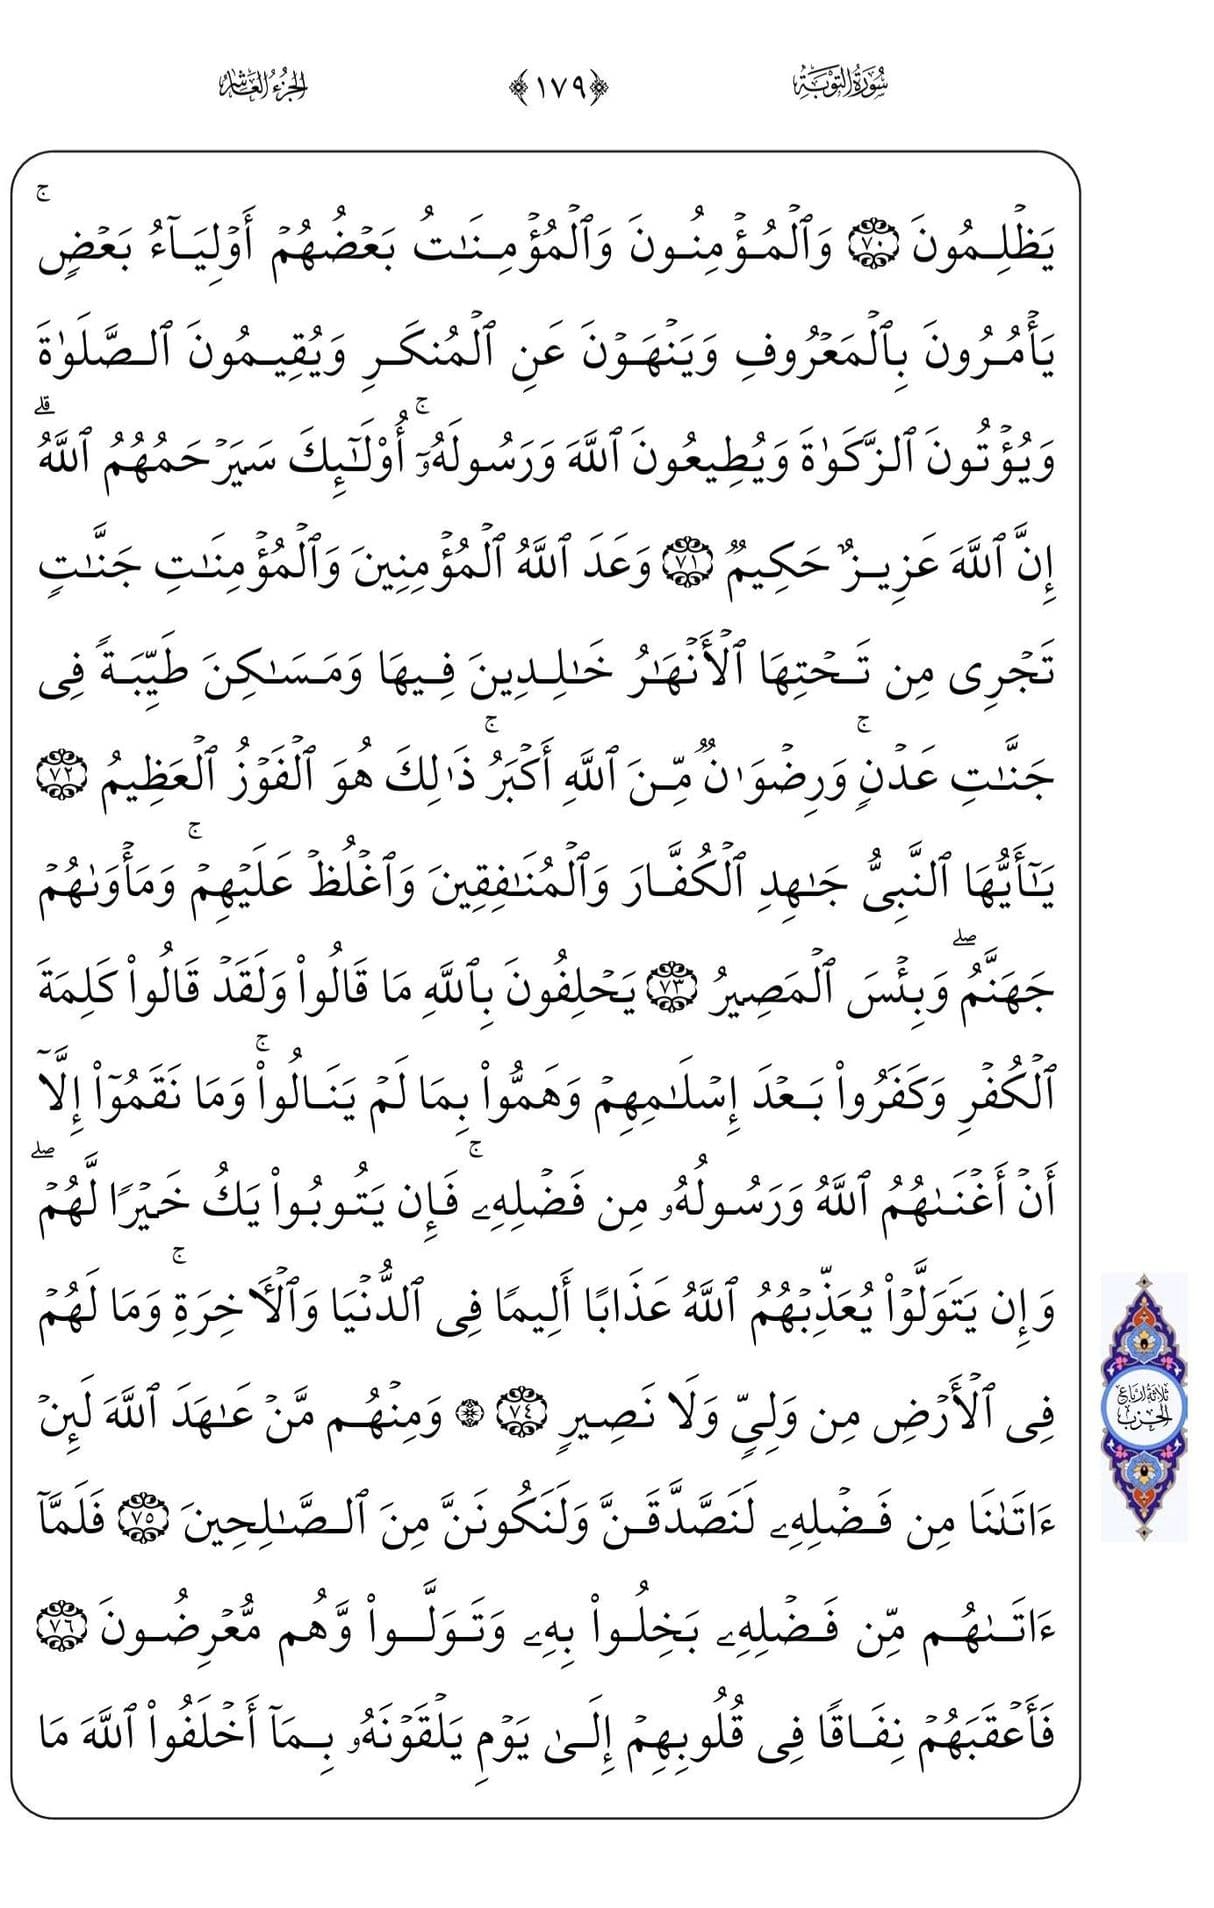 سُورَةُ التَّوْبَةِ ﴿١٧٩﴾ الجُزْءُ العَاشِرُ
يَظْلِمُونَ ٧٠ وَٱلْمُؤْمِنُونَ وَٱلْمُؤْمِنَٰتُ بَعْضُهُمْ أَوْلِيَآءُ بَعْضٍۚ
يَأْمُرُونَ بِٱلْمَعْرُوفِ وَيَنْهَوْنَ عَنِ ٱلْمُنكَرِ وَيُقِيمُونَ ٱلصَّلَوٰةَ
وَيُؤْتُونَ ٱلزَّكَوٰةَ وَيُطِيعُونَ ٱللَّهَ وَرَسُولَهُۥٓۚ أُو۟لَٰٓئِكَ سَيَرْحَمُهُمُ ٱللَّهُۗ
إِنَّ ٱللَّهَ عَزِيزٌ حَكِيمٌ ٧١ وَعَدَ ٱللَّهُ ٱلْمُؤْمِنِينَ وَٱلْمُؤْمِنَٰتِ جَنَّٰتٍ
تَجْرِى مِن تَحْتِهَا ٱلْأَنْهَٰرُ خَٰلِدِينَ فِيهَا وَمَسَٰكِنَ طَيِّبَةً فِى
جَنَّٰتِ عَدْنٍۚ وَرِضْوَٰنٌ مِّنَ ٱللَّهِ أَكْبَرُۚ ذَٰلِكَ هُوَ ٱلْفَوْزُ ٱلْعَظِيمُ ٧٢
يَٰٓأَيُّهَا ٱلنَّبِىُّ جَٰهِدِ ٱلْكُفَّارَ وَٱلْمُنَٰفِقِينَ وَٱغْلُظْ عَلَيْهِمْۚ وَمَأْوَىٰهُمْ
جَهَنَّمُۖ وَبِئْسَ ٱلْمَصِيرُ ٧٣ يَحْلِفُونَ بِٱللَّهِ مَا قَالُوا۟ وَلَقَدْ قَالُوا۟ كَلِمَةَ
ٱلْكُفْرِ وَكَفَرُوا۟ بَعْدَ إِسْلَٰمِهِمْ وَهَمُّوا۟ بِمَا لَمْ يَنَالُوا۟ۚ وَمَا نَقَمُوٓا۟ إِلَّآ
أَنْ أَغْنَىٰهُمُ ٱللَّهُ وَرَسُولُهُۥ مِن فَضْلِهِۦۚ فَإِن يَتُوبُوا۟ يَكُ خَيْرًا لَّهُمْۖ
وَإِن يَتَوَلَّوْا۟ يُعَذِّبْهُمُ ٱللَّهُ عَذَابًا أَلِيمًا فِى ٱلدُّنْيَا وَٱلْءَاخِرَةِۚ وَمَا لَهُمْ
فِى ٱلْأَرْضِ مِن وَلِىٍّ وَلَا نَصِيرٍ ٧٤ ۞ وَمِنْهُم مَّنْ عَٰهَدَ ٱللَّهَ لَئِنْ
ثلاثة أرباع
الحزب
ءَاتَىٰنَا مِن فَضْلِهِۦ لَنَصَّدَّقَنَّ وَلَنَكُونَنَّ مِنَ ٱلصَّٰلِحِينَ ٧٥ فَلَمَّآ
ءَاتَىٰهُم مِّن فَضْلِهِۦ بَخِلُوا۟ بِهِۦ وَتَوَلَّوا۟ وَّهُم مُّعْرِضُونَ ٧٦
فَأَعْقَبَهُمْ نِفَاقًا فِى قُلُوبِهِمْ إِلَىٰ يَوْمِ يَلْقَوْنَهُۥ بِمَآ أَخْلَفُوا۟ ٱللَّهَ مَا